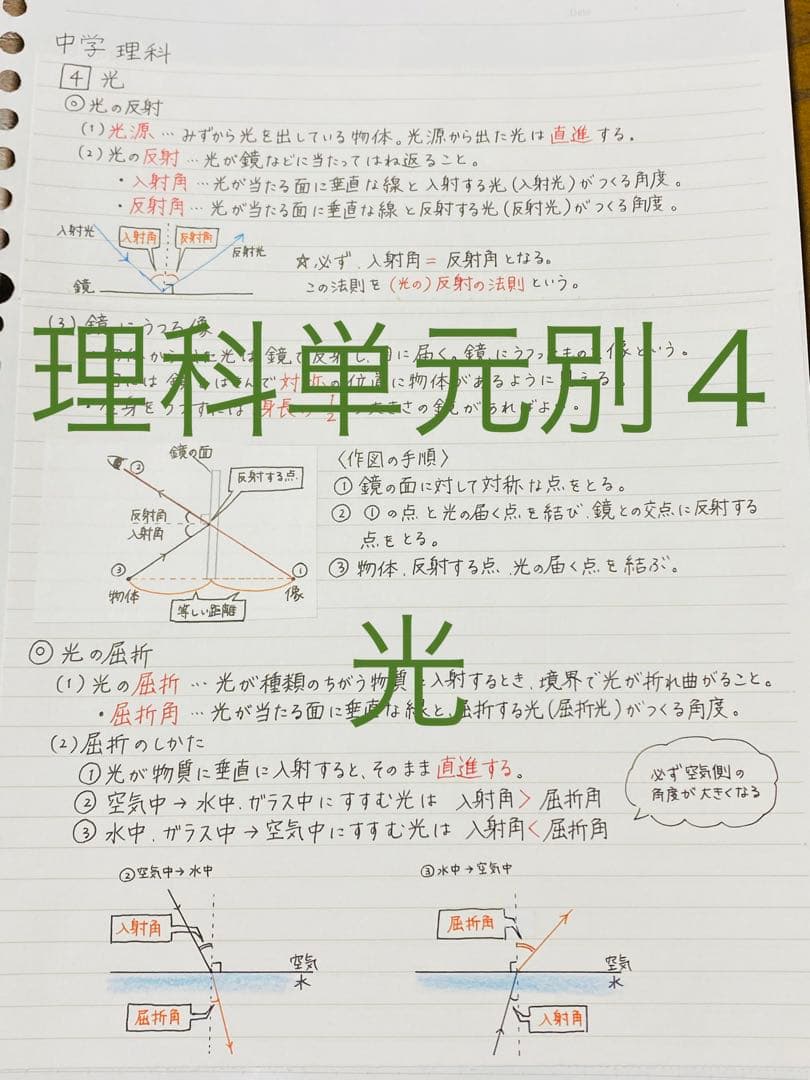 中学理科
4 光
◎光の反射
(1)光源…みずから光を出している物体。光源から出た光は直進する.
(2)光の反射…光が鏡などに当たってはね返ること。
・入射角…光が当たる面に垂直な線と入射する光(入射光)がつくる角度。
・反射角…光が当たる面に垂直な線と反射する光(反射光)がつくる角度。
入射光
入射角
反射角
反射光
鏡
☆必ず、入射角=反射角となる。
この法則を(光の)反射の法則という。
(3)鏡にうつる像
は鏡で反射し、目に届く。鏡にうつったものを像という。
対称の位置に物体があるように見える。
身長の1/2の大きさの鏡があればよい。
理科単元別4
光
鏡の面
②
反射する点
反射角
入射角
③
①
物体
像
等しい距離
〈作図の手順〉
①鏡の面に対して対称な点をとる。
②①の点と光の届く点を結び、鏡との交点に反射する
点をとる。
③物体、反射する点、光の届く点を結ぶ。
◎光の屈折
(1)光の屈折…光が種類のちがう物質に入射するとき、境界で光が折れ曲がること。
・屈折角…光が当たる面に垂直な線と、屈折する光(屈折光)がつくる角度。
(2)屈折のしかた
①光が物質に垂直に入射すると、そのまま直進する。
②空気中→水中、ガラス中にすすむ光は 入射角>屈折角
③水中、ガラス中→空気中にすすむ光は 入射角<屈折角
必ず空気側の
角度が大きくなる
②空気中→水中
入射角
空気
水
屈折角
③水中→空気中
屈折角
空気
水
入射角